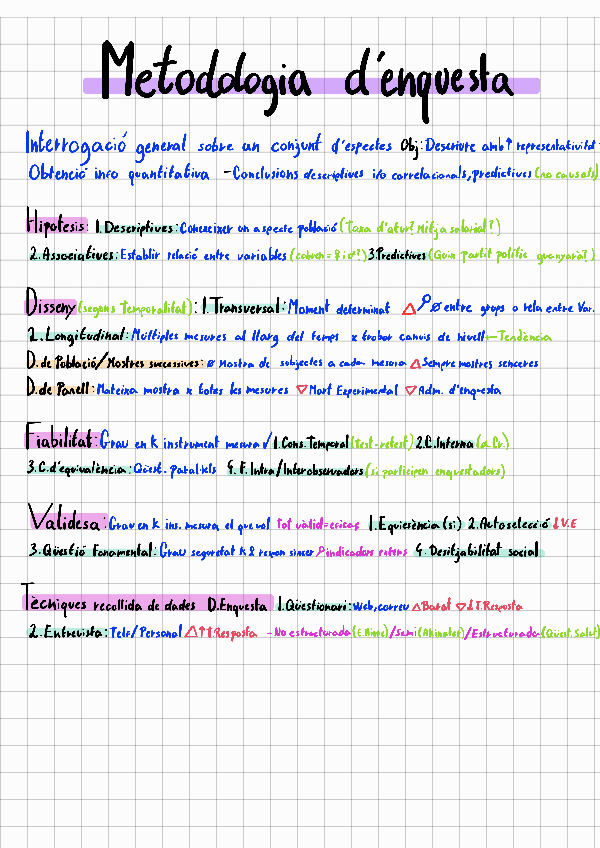 Metodologia d'enquesta
Interrogació general sobre un conjunt d'espectes Obj: Descriure amb ↑ representativitat
Obtenció info quantitativa - Conclusions descriptives i/o correlacionals, predictives (no causals)
Hipotesis: 1. Descriptives: Coneixer un aspecte població (Taxa d'atur? Mitja salarial?)
2. Associatives: Establir relació entre variables 3. Predictives (Quin partit politic guanyaria?)
Disseny (segons Temporalitat): 1. Transversal: Moment determinat △ entre grups o rela entre Var.
2. Longitudinal: Múltiples mesures al llarg del temps x trobar canvis de nivell ← Tendència
D. de Població/Mostres successives: ≠ Mostra de subjectes a cada mesura △ Sempre mostres senceres
D. de Panell: Mateixa mostra x totes les mesures ▽ Mort Experimental ▽ Adm. d'enquesta
Fiabilitat: Grau en k instrument mesura √ 1. Cons. Temporal (test-retest) 2. C. Interna (α Cr.)
3. C. d'equivalència: Qüest. Paral·lels 4. F. Intra/Interobservadors (si participen enquestadors)
Validesa: Grau en k ins. mesura el que vol Tot vàlid = eficaç 1. 2. Autoselecció ↓ V.E
3. Qüestió Fonamental: Grau seguretat k responsincer 4. Desitjabilitat social
Tècniques recollida de dades D. Enquesta 1. Qüestionari: Web, correu △ Barat ▽ ↓ T. Resposta
2. Entrevista: Telf/Personal △ ↑↑ Resposta - No estructurada /Semi /Estructurada (Qüest. Salut)